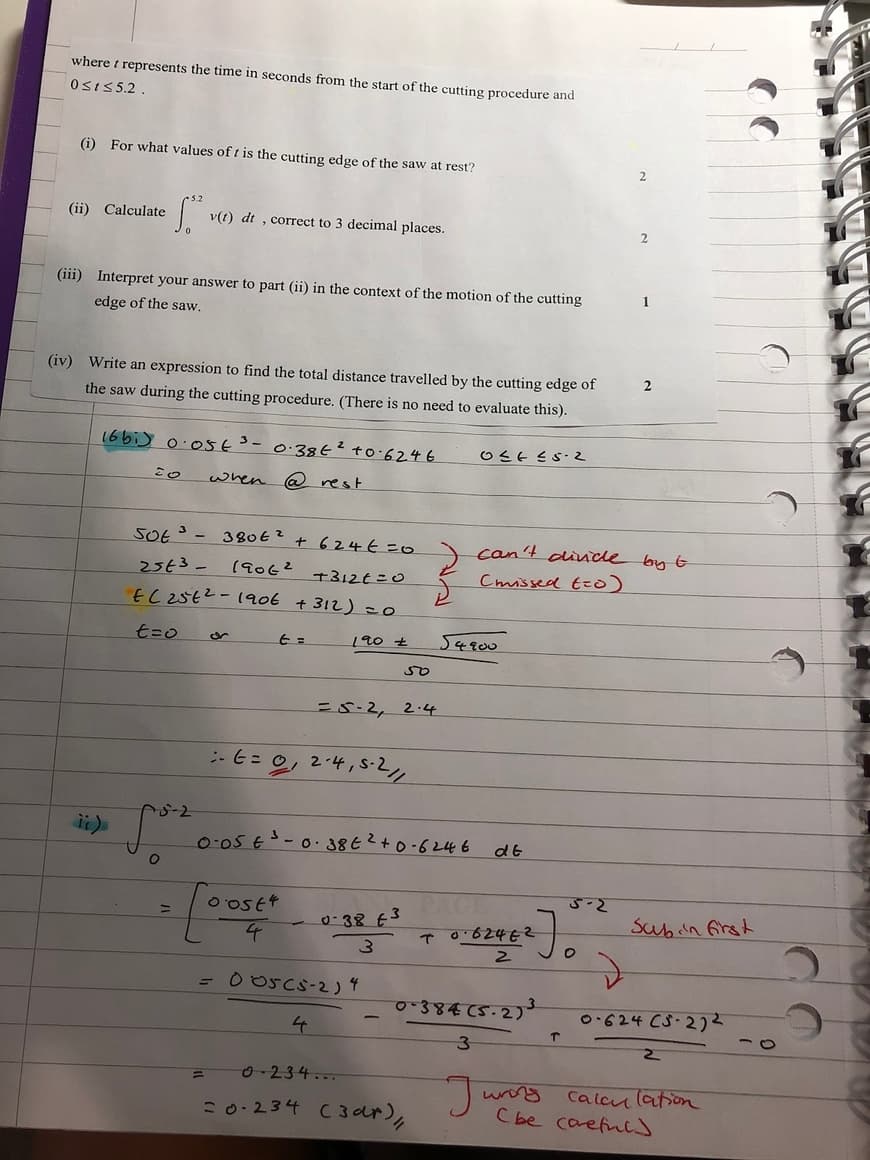 where t represents the time in seconds from the start of the cutting procedure and
0 ≤ t ≤ 5.2 .
(i) For what values of t is the cutting edge of the saw at rest? 2
(ii) Calculate ∫₀^5.2 v(t) dt , correct to 3 decimal places. 2
(iii) Interpret your answer to part (ii) in the context of the motion of the cutting 1
edge of the saw.
(iv) Write an expression to find the total distance travelled by the cutting edge of 2
the saw during the cutting procedure. (There is no need to evaluate this).
16bi) 0.05t³ - 0.38t² + 0.624t 0 ≤ t ≤ 5.2
=0 when @ rest
50t³ - 380t² + 624t = 0 can't divide by t
25t³ - 190t² + 312t = 0 (missed t=0)
t(25t² - 190t + 312) = 0
t=0 or t = (190 ± √4900)/50
= 5.2, 2.4
∴ t = 0, 2.4, 5.2 //
ii) ∫₀^5.2 0.05t³ - 0.38t² + 0.624t dt
= [0.05t⁴/4 - 0.38t³/3 + 0.624t²/2]₀^5.2 Sub in first
= 0.05(5.2)⁴/4 - 0.38t(5.2)³/3 + 0.624(5.2)²/2 - 0
= 0.234...
= 0.234 (3dp) // wrong calculation
(be careful)